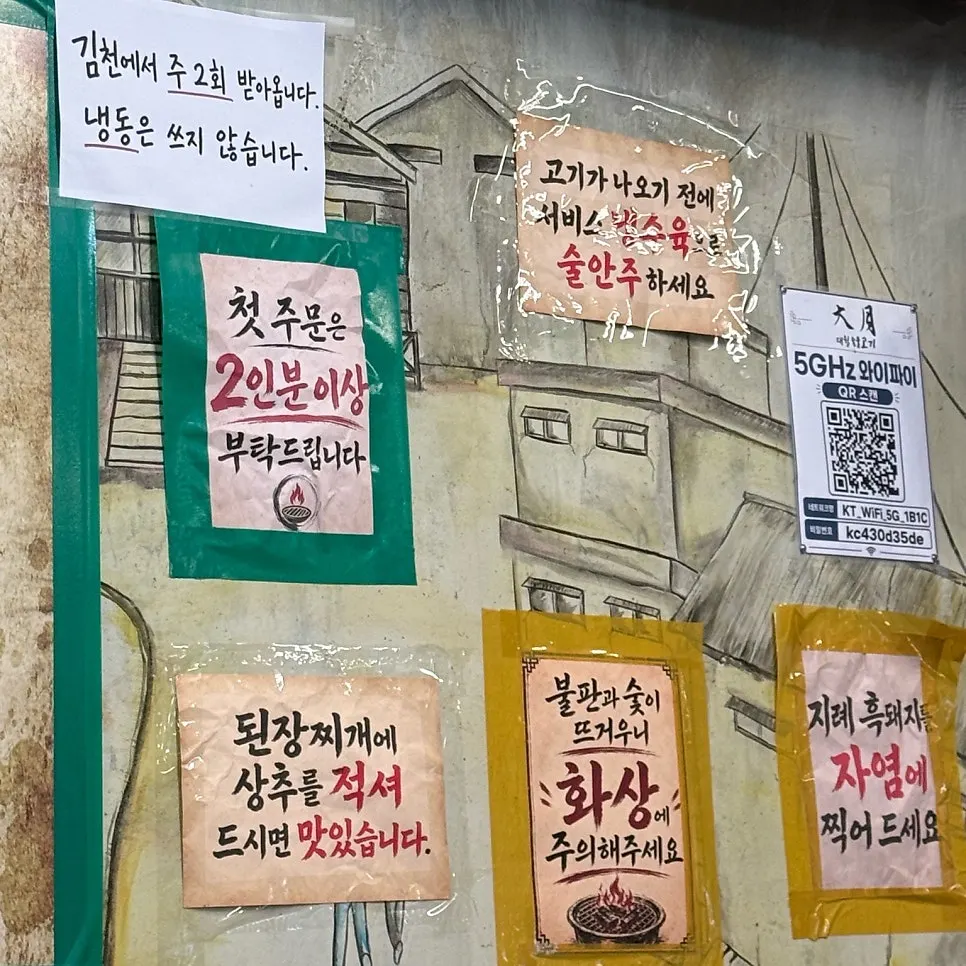 김천에서 주 2회 받아옵니다.
냉동은 쓰지 않습니다.
첫 주문은
2인분이상
부탁드립니다
고기가 나오기 전에
서비스 수육으로
술안주하세요
大月
5GHz 와이파이
QR 스캔
네트워크명 KT_WiFi_5G_1B1C
비밀번호 kc430d35de
된장찌개에
상추를 적셔
드시면 맛있습니다.
불판과 숯이
뜨거우니
화상에
주의해주세요
지례 흑돼지를
자염에
찍어 드세요